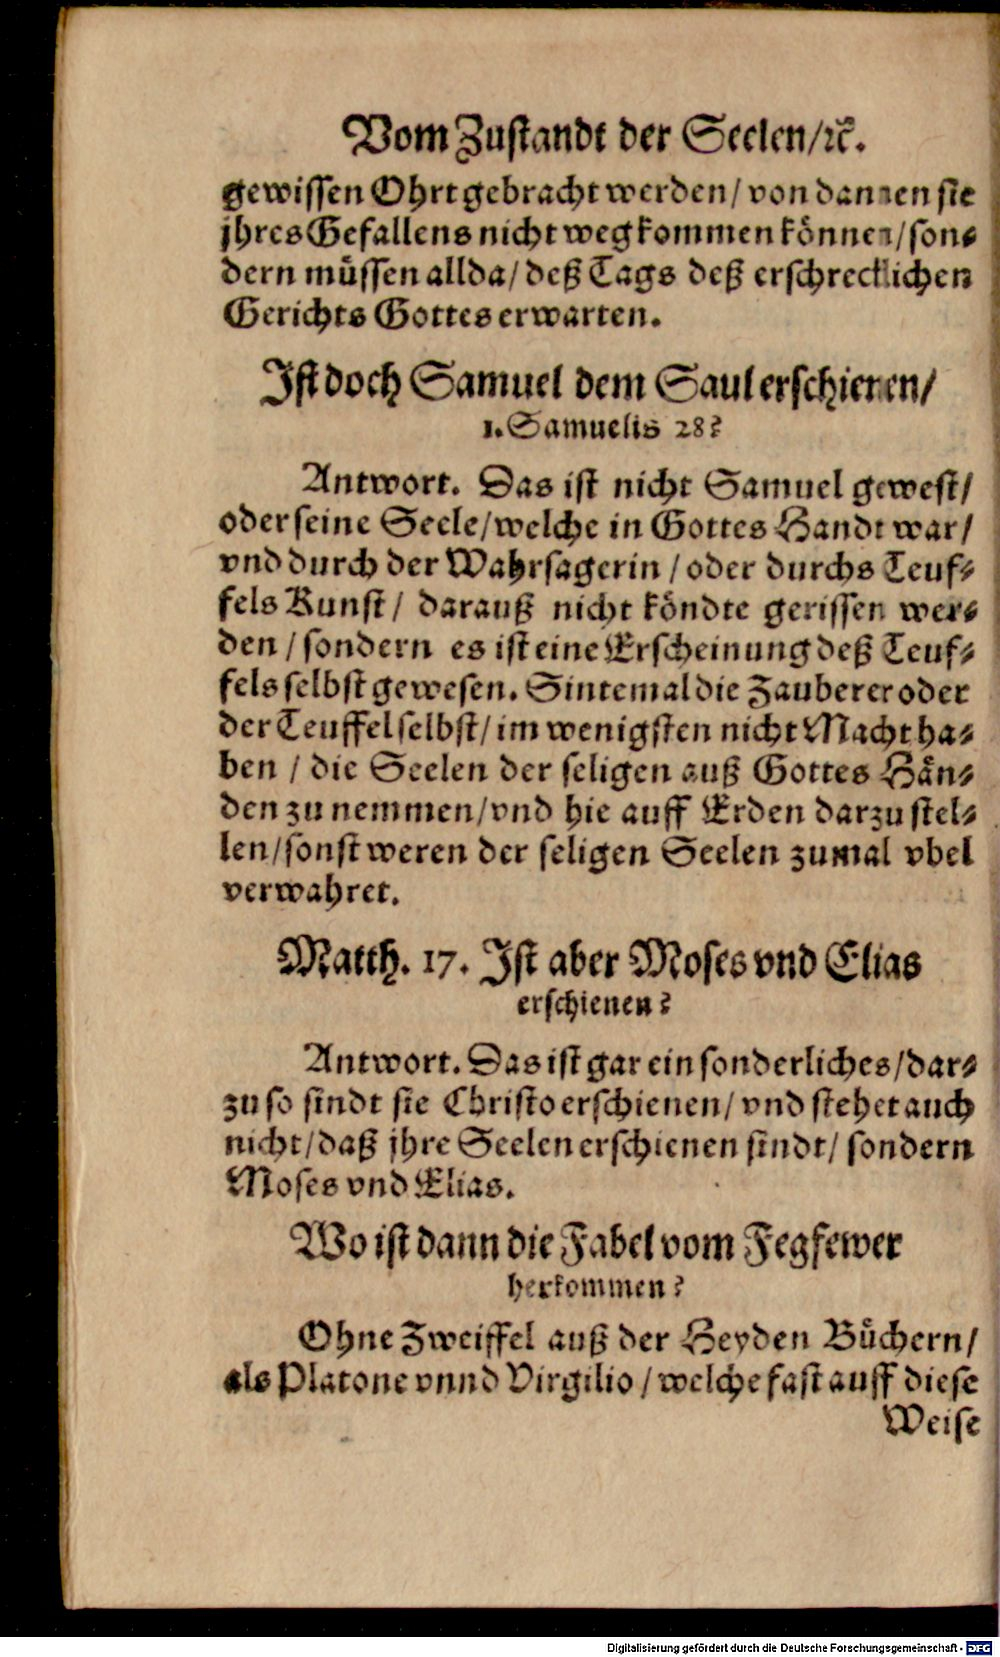 Vom Zustandt der Seelen/ꝛc̃.
gewissen Ohrt gebracht werden/ von dannen sie
jhres Gefallens nicht weg kommen können/ son⸗
dern müssen allda/ deß Tags deß erschrecklichen
Gerichts Gottes erwarten.
Ist doch Samuel dem Saul erschienen/
1. Samuelis 28?
Antwort. Das ist nicht Samuel gewest/
oder seine Seele/ welche in Gottes Handt war/
vnd durch der Wahrsagerin / oder durchs Teuf⸗
fels Kunst/ darauß nicht köndte gerissen wer⸗
den / sondern es ist eine Erscheinung deß Teuf⸗
fels selbst gewesen. Sintemal die Zauberer oder
der Teuffel selbst/ im wenigsten nicht Macht ha⸗
ben / die Seelen der seligen auß Gottes Hän⸗
den zu nemmen/ vnd hie auff Erden darzu stel⸗
len/ sonst weren der seligen Seelen zumal vbel
verwahret.
Matth. 17. Ist aber Moses vnd Elias
erschienen?
Antwort. Das ist gar ein sonderliches/ dar⸗
zu so sindt sie Christo erschienen/ vnd stehet auch
nicht/ daß jhre Seelen erschienen sindt/ sondern
Moses vnd Elias.
Wo ist dann die Fabel vom Fegfewer
herkommen?
Ohne Zweiffel auß der Heyden Büchern/
als Platone vnnd Virgilio / welche fast auff diese
Weise
Digitalisierung gefördert durch die Deutsche Forschungsgemeinschaft - DFG